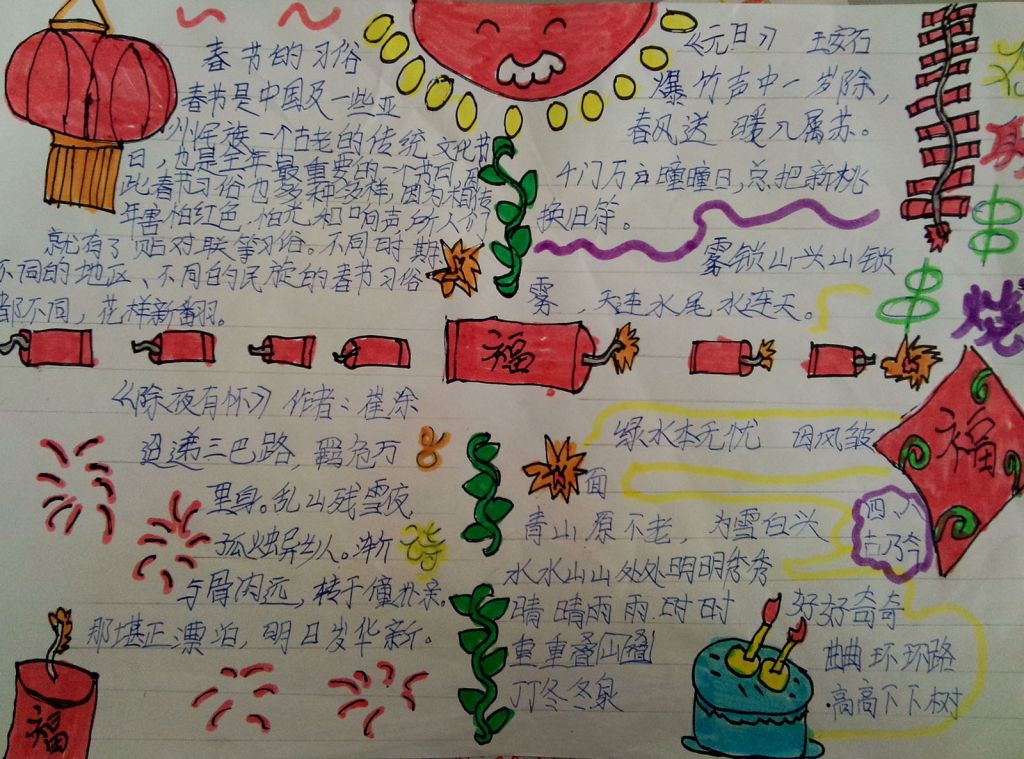 春节的习俗
春节是中国及一些亚
州民族一个古老的传统文化节
日，也是全年最重要的一个节日，
此春节习俗也多种多样，因为相传
年害怕红色、怕光和响声所人们
就有了贴对联等习俗。不同时期、
不同的地区、不同的民族的春节习俗
都不同，花样新翻。
《元旦》 王安石
爆竹声中一岁除，
春风送暖入屠苏。
千门万户曈曈日，总把新桃
换旧符。
雾锁山头山锁
雾，天连水尾水连天。
福
福
《除夜有怀》 作者：崔涂
迢递三巴路，羁危万
里身。乱山残雪夜
孤烛异人。渐
与骨肉远，转于僮仆亲。
那堪正漂泊，明日岁华新。
绿水本无忧 因风皱
面
青山原不老， 为雪白头
水水山山处处明明秀秀
晴晴雨雨时时 好好奇奇
重重叠叠山
丁冬冬泉
曲曲环环路
高高下下树
福
烧